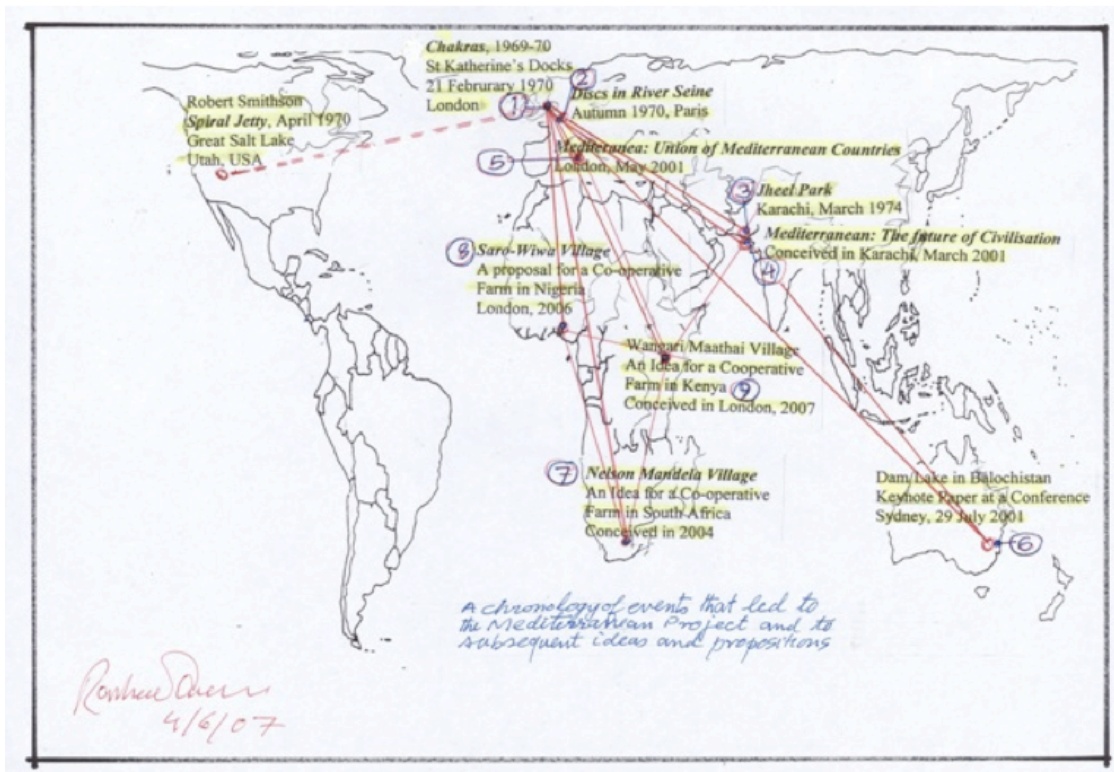 Chakras, 1969-70
St Katherine's Docks
21 Februrary 1970
London
1
2
Discs in River Seine
Autumn 1970, Paris
Robert Smithson
Spiral Jetty, April 1970
Great Salt Lake
Utah, USA
5
Mediteranea: Union of Mediterranean Countries
London, May 2001
3
Jheel Park
Karachi, March 1974
Mediterranean: The future of Civilisation
Conceived in Karachi, March 2001
4
8
Saro-Wiwa Village
A proposal for a Co-operative
Farm in Nigeria
London, 2006
Wangari Maathai Village
An Idea for a Cooperative
Farm in Kenya
9
Conceived in London, 2007
7
Nelson Mandela Village
An Idea for a Co-operative
Farm in South Africa
Conceived in 2004
Dam/Lake in Balochistan
Keyhote Paper at a Conference
Sydney, 29 July 2001
6
A chronology of events that led to
the Mediterranean Project and to
subsequent ideas and propositions
4/6/07